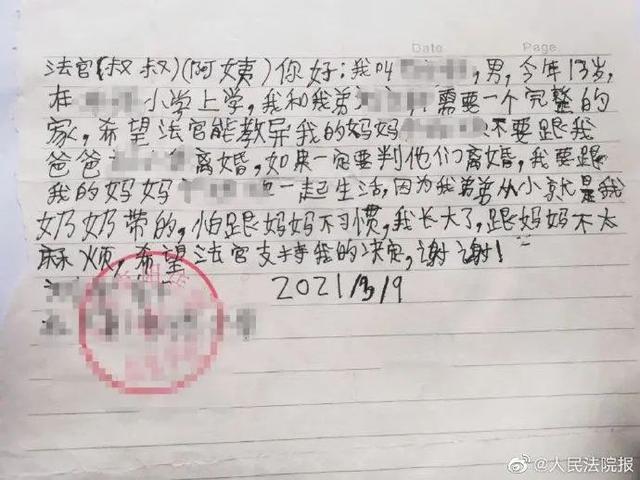 Date Page
法官(叔叔)(阿姨)你好:我叫,男,今年13岁,
在小学上学,我和我弟,需要一个完整的
家,希望法官能教导我的妈妈不要跟我
爸爸离婚,如果一定要判他们离婚,我要跟
我的妈妈一起生活,因为我弟弟从小就是我
奶奶带的,怕跟妈妈不习惯,我长大了,跟妈妈不太
麻烦,希望法官支持我的决定,谢谢!
2021/3/9
@人民法院报